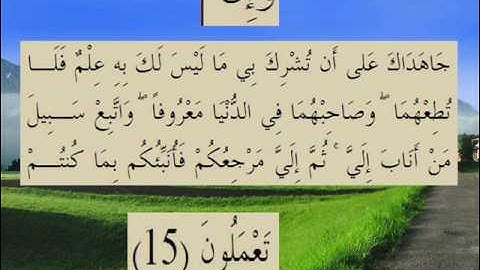 وَإِن
جَاهَدَاكَ عَلى أَن تُشْرِكَ بِي مَا لَيْسَ لَكَ بِهِ عِلْمٌ فَلَـــا
تُطِعْهُمَا ۖ وَصَاحِبْهُمَا فِي الدُّنْيَا مَعْرُوفاً ۖ وَاتَّبِعْ سَـــبِيلَ
مَنْ أَنَابَ إِلَيَّ ۚ ثُمَّ إِلَيَّ مَرْجِعُكُمْ فَأُنَبِّئُكُم بِمَا كُنتُـــمْ
تَعْمَلُونَ (15)